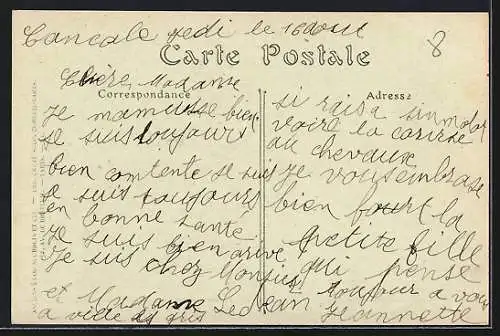 Cancale jedi le 16 aout
8
Carte Postale
Chère Madame
Correspondance
Adresse
Je mamusse bien
je suis toujours
bien contente je suis
je suis toujours
en bonne santé
je suis bien arivé
Je suis chez Monsieur
et Madame Ledean
a ville des gris
si
voire la
au chevaux
Je vous embrase
bien fourt la
petite fille
qui pense
toujour a vous
Jeannette